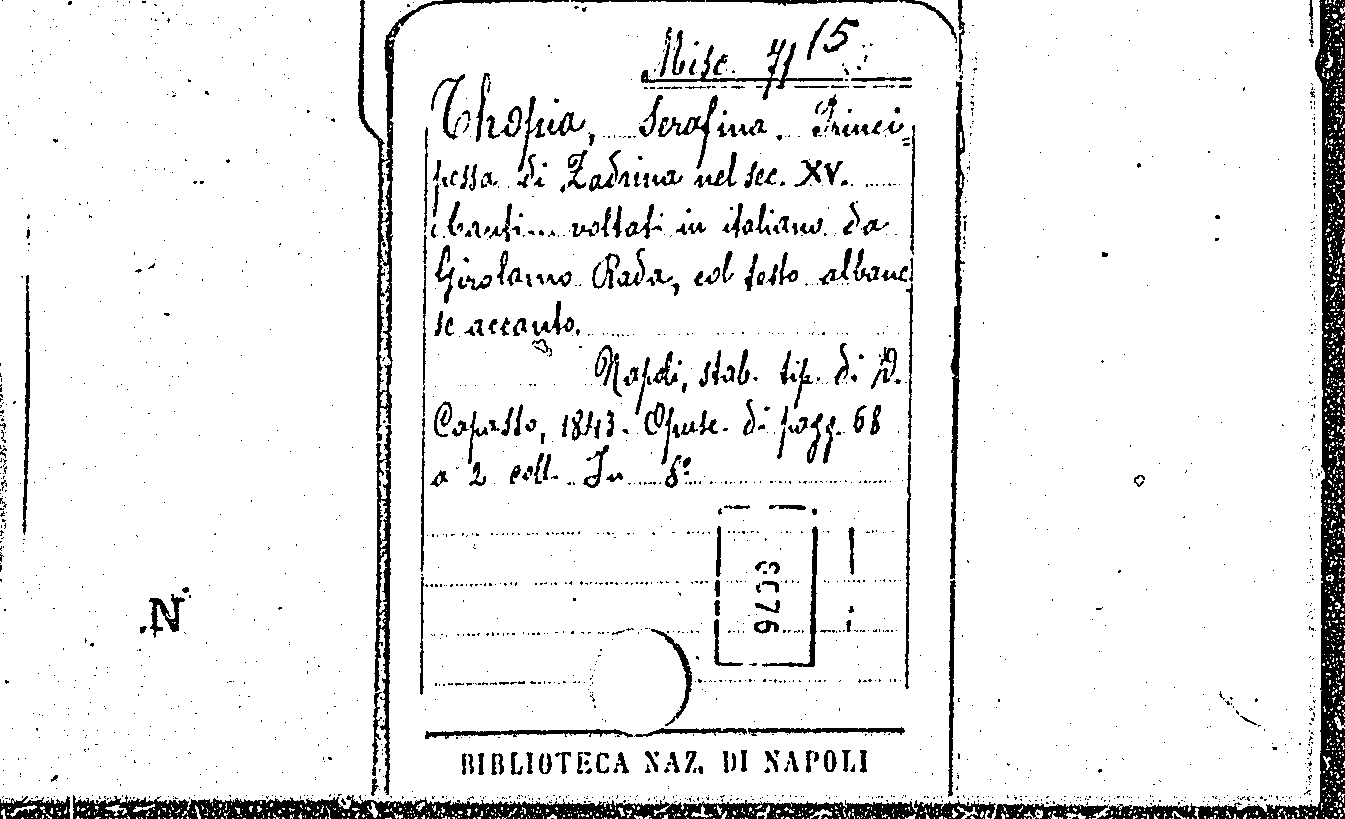 Misc. 71 15
Thopia, Serafina. Princi=
pessa di Zadrina nel sec. XV.
Canti... voltati in italiano da
Girolamo Rada, col testo albane
se accanto.
Napoli, stab. tip. di D.
Capasso, 1843. Opusc. di pagg. 68
a 2 coll. In 8º
N.
BIBLIOTECA NAZ. DI NAPOLI